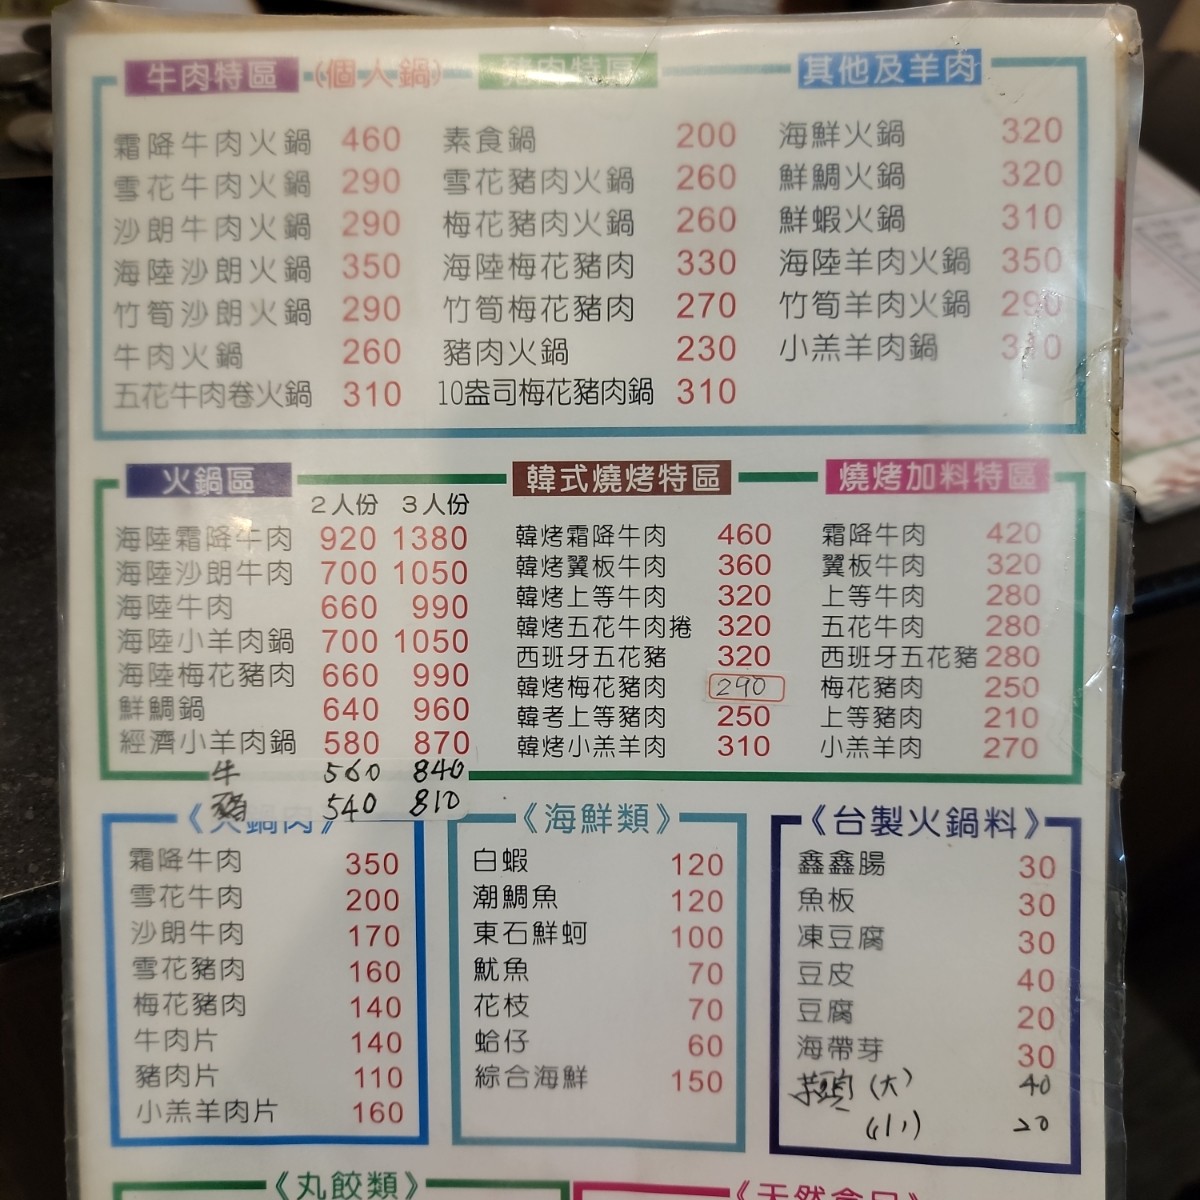 牛肉特區 (個人鍋)
霜降牛肉火鍋 460
雪花牛肉火鍋 290
沙朗牛肉火鍋 290
海陸沙朗火鍋 350
竹筍沙朗火鍋 290
牛肉火鍋 260
五花牛肉卷火鍋 310
豬肉特區
素食鍋 200
雪花豬肉火鍋 260
梅花豬肉火鍋 260
海陸梅花豬肉 330
竹筍梅花豬肉 270
豬肉火鍋 230
10盎司梅花豬肉鍋 310
其他及羊肉
海鮮火鍋 320
鮮鯛火鍋 320
鮮蝦火鍋 310
海陸羊肉火鍋 350
竹筍羊肉火鍋 290
小羔羊肉鍋
火鍋區
2人份 3人份
海陸霜降牛肉 920 1380
海陸沙朗牛肉 700 1050
海陸牛肉 660 990
海陸小羊肉鍋 700 1050
海陸梅花豬肉 660 990
鮮鯛鍋 640 960
經濟小羊肉鍋 580 870
牛 560 840
豬 540 810
韓式燒烤特區
韓烤霜降牛肉 460
韓烤翼板牛肉 360
韓烤上等牛肉 320
韓烤五花牛肉捲 320
西班牙五花豬 320
韓烤梅花豬肉 290
韓考上等豬肉 250
韓烤小羔羊肉 310
燒烤加料特區
霜降牛肉 420
翼板牛肉 320
上等牛肉 280
五花牛肉 280
西班牙五花豬 280
梅花豬肉 250
上等豬肉 210
小羔羊肉 270
《火鍋肉》
霜降牛肉 350
雪花牛肉 200
沙朗牛肉 170
雪花豬肉 160
梅花豬肉 140
牛肉片 140
豬肉片 110
小羔羊肉片 160
《海鮮類》
白蝦 120
潮鯛魚 120
東石鮮蚵 100
魷魚 70
花枝 70
蛤仔 60
綜合海鮮 150
《台製火鍋料》
鑫鑫腸 30
魚板 30
凍豆腐 30
豆皮 40
豆腐 20
海帶芽 30
芋頭(大) 40
(小) 20
《丸餃類》
《天然食品》